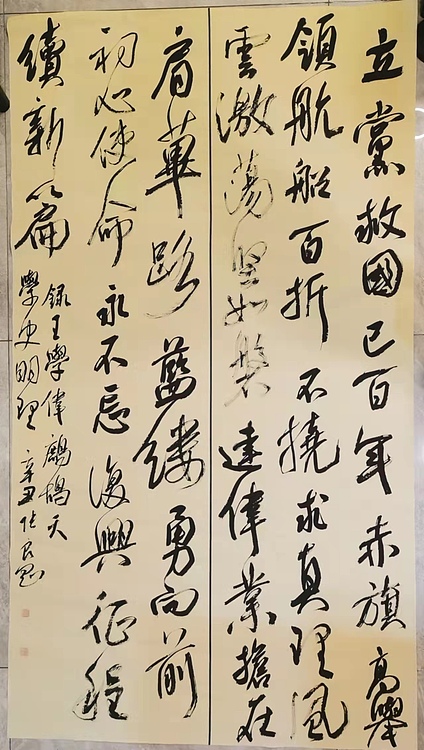 立黨救國已百年赤旗高舉
領航船百折不撓求真理風
雲激蕩坚如磐建偉業擔在
肩蓽路藍縷勇向前
初心使命永不忘復興征程
續新篇
錄王學偉鷓鴣天
學史明理 辛丑